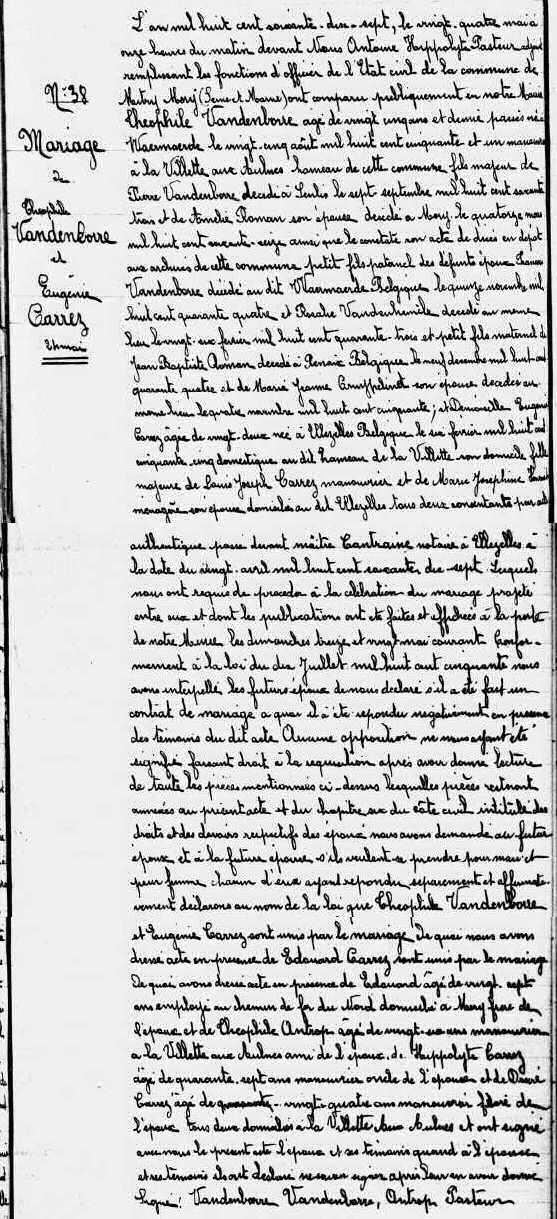 N° 38
Mariage
de
Théophile
Vandenborre
et
Eugénie
Carrez
24 mai
L'an mil huit cent soixante-dix-sept, le vingt-quatre mai à
onze heures du matin devant Nous Antoine Hyppolyte Pasteur adjoint
remplissant les fonctions d'officier de l'Etat civil de la commune de
Mitry Mory (Seine et Marne) ont comparu publiquement en notre Mairie
Théophile Vandenborre agé de vingt cinq ans et demi né à
Waermaerde le vingt-cinq août mil huit cent cinquante et un manouvrier
à la Villette aux Aulnes hameau de cette commune fils majeur de
Pierre Vandenborre décédé à Senlis le sept septembre mil huit cent soixante
trois et de Amélie Roman son épouse décédée à Mory le quatorze mars
mil huit cent soixante-seize ainsi que le constate son acte de décès en dépot
aux archives de cette commune petit fils paternel des défunts époux
Vandenborre décédé au dit Waermaerde Belgique le quinze novembre mil
huit cent quarante quatre et Rosalie décédée au même
lieu le vingt-six février mil huit cent quarante-trois et petit fils maternel de
Jean Baptiste Roman décédé à Renaix Belgique le neuf décembre mil huit cent
quarante quatre et de Marie Jeanne son épouse décédée au
même lieu le quatre novembre mil huit cent cinquante; et Demoiselle Eugénie
Carrez âgée de vingt-deux née à Ellezelles Belgique le six février mil huit cent
cinquante-cinq domestique au dit hameau de la Villette son domicile fille
majeure de Louis Joseph Carrez manouvrier et de Marie Joséphine
ménagère son épouse domiciliés au dit Ellezelles tous deux consentants par acte
authentique passé devant maître Cantraine notaire à Ellezelles à
la date du vingt-avril mil huit cent soixante-dix-sept Lesquels
nous ont requis de procéder à la célébration du mariage projeté
entre eux et dont les publications ont été faites et affichées à la porte
de notre Mairie les dimanches treize et vingt mai courant Confor-
mément à la loi du dix Juillet mil huit cent cinquante nous
avons interpellé les futurs époux de nous déclaré s'il a été fait un
contrat de mariage a quoi il a été répondu négativement en présence
des témoins du dit acte Aucune opposition ne nous ayant été
signifié faisant droit à la réquisition après avoir donné lecture
de toute les pièces mentionnées ci-dessus lesquelles pièces resteront
annexées au présent acte et du chapitre six du code civil intitulé des
droits et des devoirs respectifs des époux nous avons demandé au futur
époux et à la future épouse s'ils veulent se prendre pour mari et
pour femme chacun d'eux ayant répondu séparément et affirmati-
vement déclarons au nom de la loi que Théophile Vandenborre
et Eugénie Carrez sont unis par le mariage De quoi nous avons
dressé acte en présence de Edouard Carrez sont unis par le mariage
De quoi avons dressé acte en présence de Edouard âgé de vingt-sept
ans employé au chemin de fer du Nord domicilié à Mory frère de
l'époux et de Théophile Antrop âgé de vingt-six ans manouvrier
a la Villette aux Aulnes ami de l'époux, de Hyppolyte Carrez
âgé de quarante-sept ans manouvrier oncle de l'épouse et de Désiré
Carrez âgé de vingt-quatre ans manouvrier frère de
l'époux tous deux domiciliés à la Villette Aux Aulnes et ont signé
avec nous le présent acte l'époux et ses témoins quand à l'épouse
et ses témoins ils ont déclaré ne savoir signer après leur en avoir donné
Vandenborre Vandenborre, Antrop Pasteur